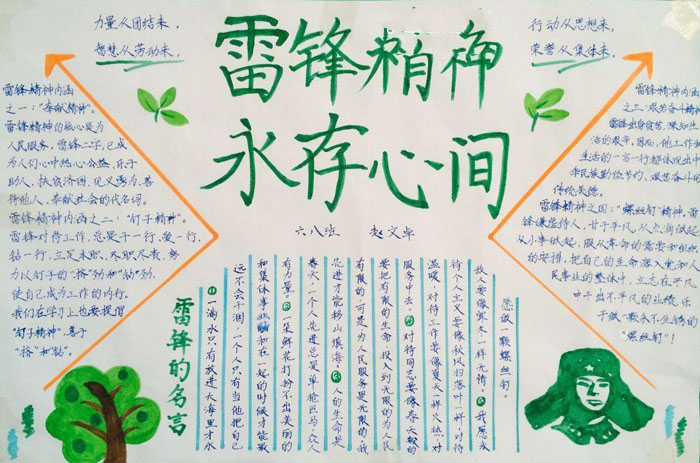 力量从团结来，
智慧从劳动来，
雷锋精神
永存心间
行动从思想来，
荣誉从集体来，
六八班 赵文卓
雷锋精神内涵
之一：“奉献精神”。
雷锋精神的核心是为
人民服务，雷锋二字，已成
为人们心中热心公益、乐于
助人、扶贫济困、见义勇为、善
待他人、奉献社会的代名词。
雷锋精神内涵之二：“钉子精神”。
雷锋对待工作，总是干一行、爱一行、
钻一行，立足本职、不职尽责，努
力以钉子的“挤”劲和“钻”劲，
使自己成为工作的内行。
我们在学习上也要提倡
“钉子精神”，善于
“挤”和“钻”。
雷锋精神内涵
之三：艰苦奋斗精神
雷锋出身贫苦，深知生
活的艰辛，因而，他工作和
生活的一言一行都体现出中
华民族勤俭节约、艰苦奋斗的
传统美德。
雷锋精神之四：“螺丝钉”精神。雷
锋谦虚待人，甘于平凡，从点滴做起
从小事做起，服从革命的需要和组织
的安排，把自己的生命落入党和人
民事业的整体中，立志在平凡
中干出不平凡的业绩，乐
于做一颗永不生锈的
“螺丝钉”！
雷锋的名言
①一滴水只有放进大海里才永
远不会干涸，一个人只有当他把自己
和集体事业融和在一起的时候才能最
有力量。②一朵鲜花打扮不出美丽的
春天，一个人先进总是单枪匹马，众人
先进才能移山填海。③人的生命是
有限的可是为人民服务是无限的，我
要把有限的生命，投入到无限的为人民
服务中去。④对待同志要像春天般的
温暖，对待工作要像夏天一样火热，对
待个人主义要像秋风扫落叶一样，对待
敌人要像寒冬一样无情。⑤我愿永
远做一颗螺丝钉。